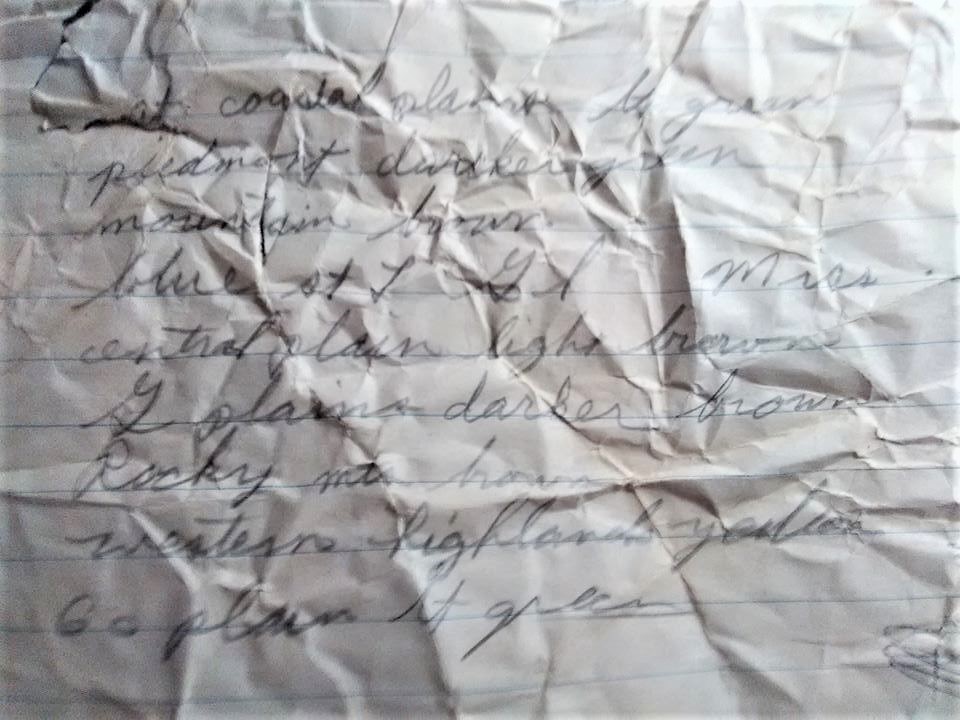 at coastal plains lt green
piedmont darker green
mountain brown
blue st L G l Miss
central plain light brown
G plains darker brown
Rocky mts brown
western highlands yellow
Co plain lt green